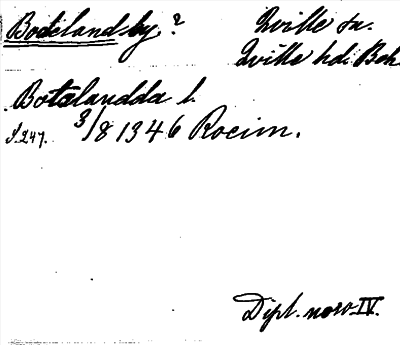 Bodelandsby?
Qville sn.
Qville hd. Boh.
Botælandda l.
S. 247. 3/8 1346 Rocim.
Dipl. norv. IV.